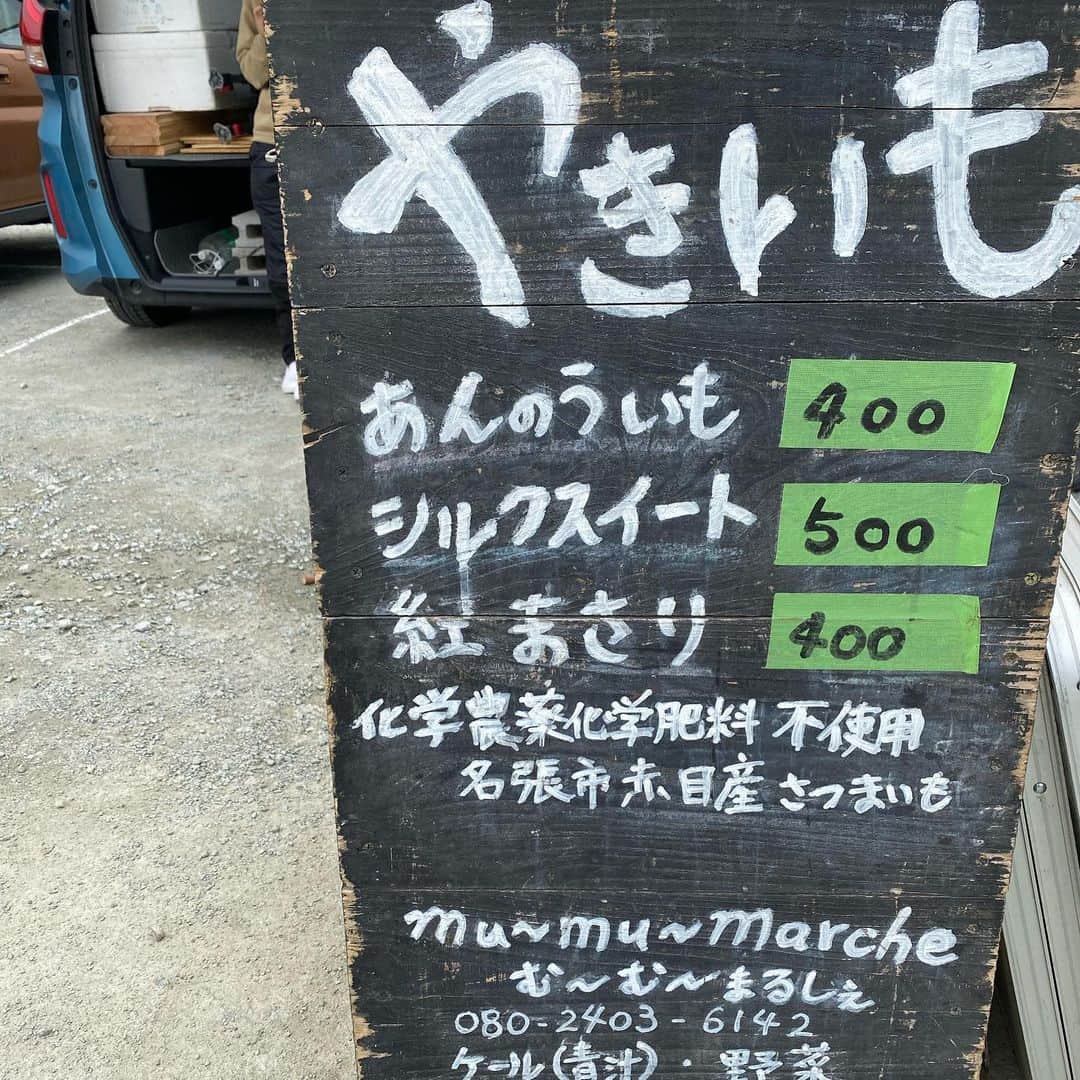 やきいも
あんのういも 400
シルクスイート 500
紅まさり 400
化学農薬化学肥料 不使用
名張市赤目産さつまいも
mu~mu~marche
む〜む〜まるしぇ
080-2403-6142
ケール(青汁)・野菜